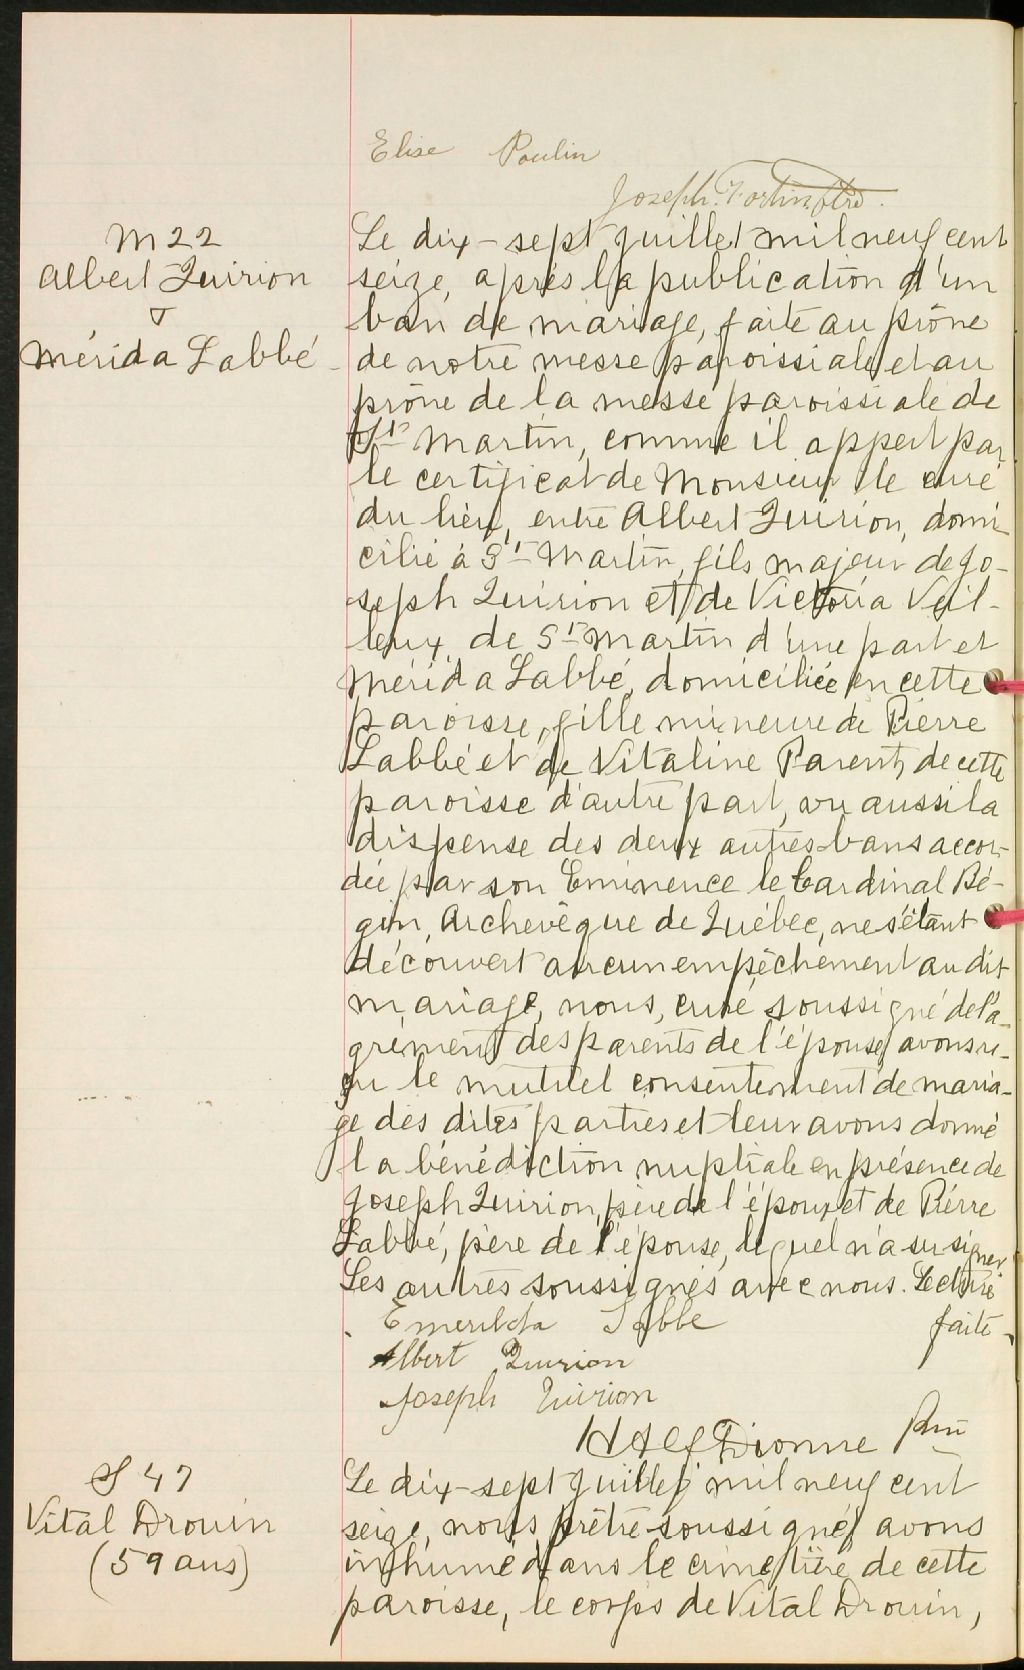 Elise Poulin
Joseph Fortin, ptre.
M 22
Albert Quirion
&
Mérida Labbé
Le dix-sept juillet mil neuf cent
seize, après la publication d'un
ban de mariage, faite au prône
de notre messe paroissiale et au
prône de la messe paroissiale de
St Martin, comme il appert par
le certificat de Monsieur le curé
du lieu, entre Albert Quirion, domi
cilié à St Martin, fils majeur de Jo-
seph Quirion et de Victoria Veil-
leux, de St Martin d'une part et
Mérida Labbé, domiciliée en cette
paroisse, fille mineure de Pierre
Labbé et de Vitaline Parent, de cette
paroisse d'autre part, vu aussi la
dispense des deux autres bans accor-
dée par son Eminence le Cardinal Bé-
gin, Archevêque de Québec, ne s'étant
découvert aucun empêchement au dit
mariage, nous, curé soussigné de l'a-
grément des parents de l'épouse, avons re-
çu le mutuel consentement de maria-
ge des dites parties et leur avons donné
la bénédiction nuptiale en présence de
Joseph Quirion, père de l'époux et de Pierre
Labbé, père de l'épouse, lequel n'a su signer
Les autres soussignés avec nous. Lecture
faite.
Emerilda Labbe
Albert Quirion
Joseph Quirion
H Alf Dionne
S 47
Vital Drouin
(59 ans)
Le dix-sept juillet mil neuf cent
seize, nous prêtre soussigné avons
inhumé dans le cimetière de cette
paroisse, le corps de Vital Drouin,